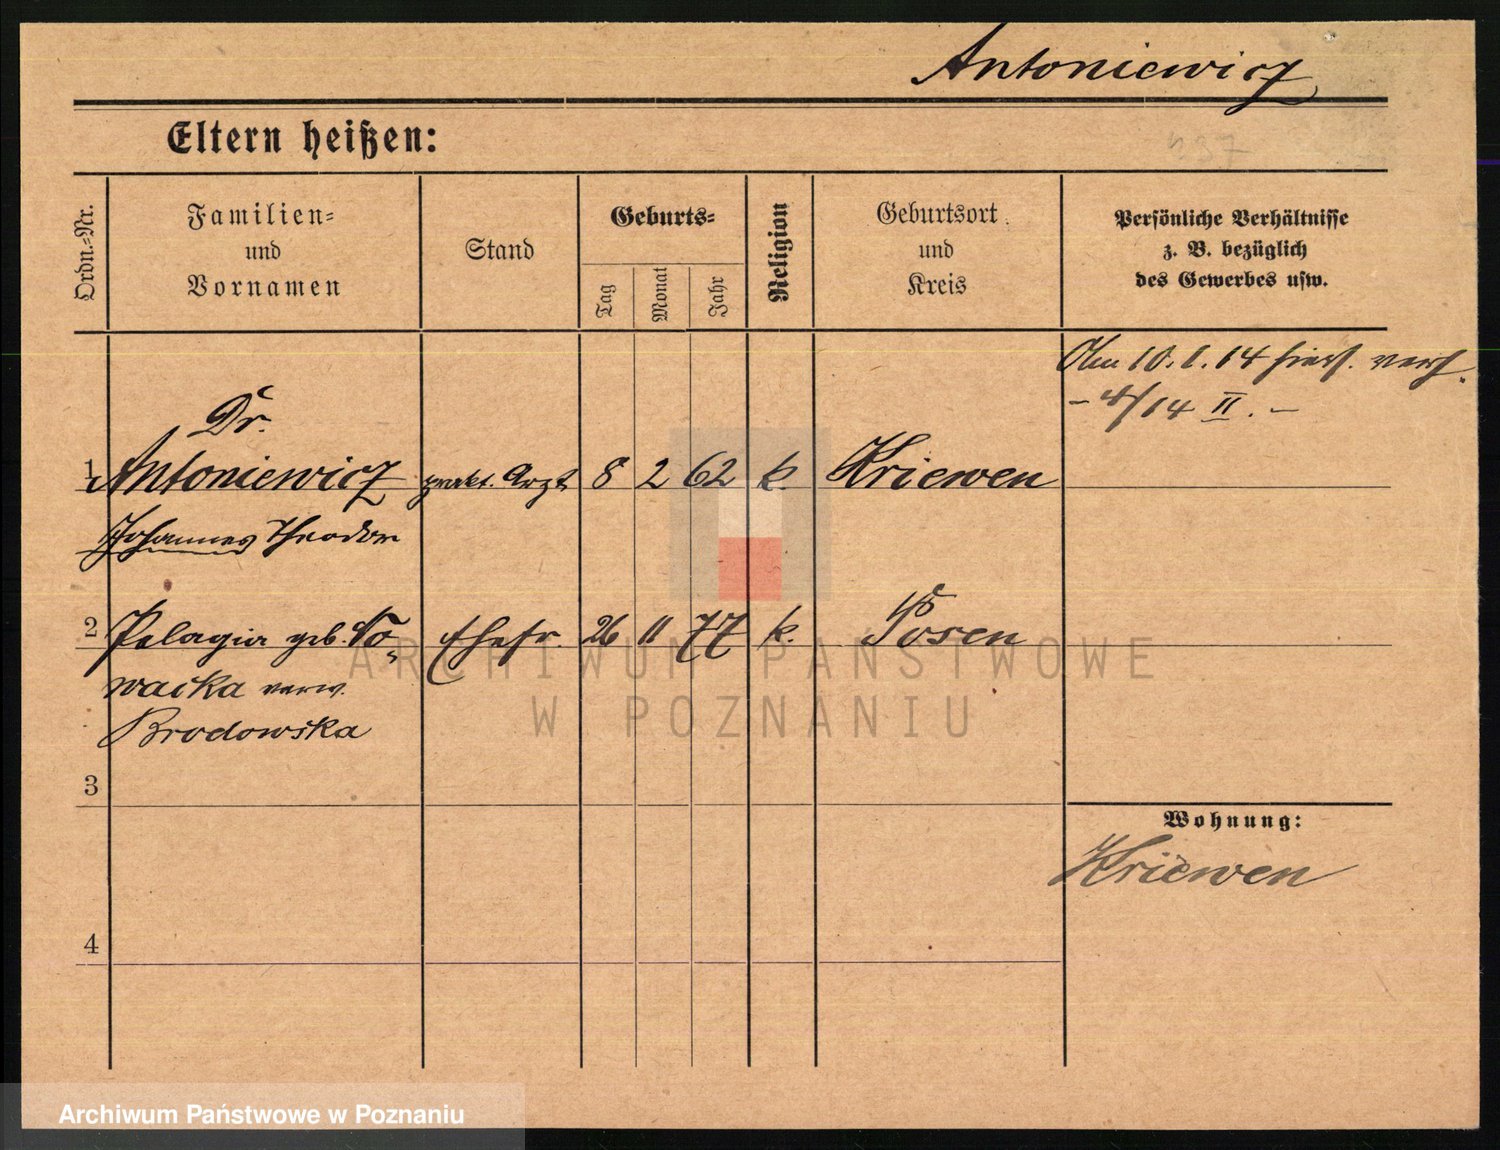 Antoniewicz
Eltern heißen:
537
Ordn.-Nr.
Familien-
und
Vornamen
Stand
Geburts-
Tag
Monat
Jahr
Religion
Geburtsort
und
Kreis
Persönliche Verhältnisse
z. B. bezüglich
des Gewerbes usw.
Am 10.1.14 hier verh.
- 4/14 II. -
Dr.
1 Antoniewicz prakt. Arzt 8 2 62 k. Kriewen
Johannes Theodor
2 Pelagia geb. No- Ehefr. 26 11 77 k. Posen
wacka verw.
Brodowska
3
Wohnung:
Kriewen
4
ARCHIWUM PAŃSTWOWE
W POZNANIU
Archiwum Państwowe w Poznaniu